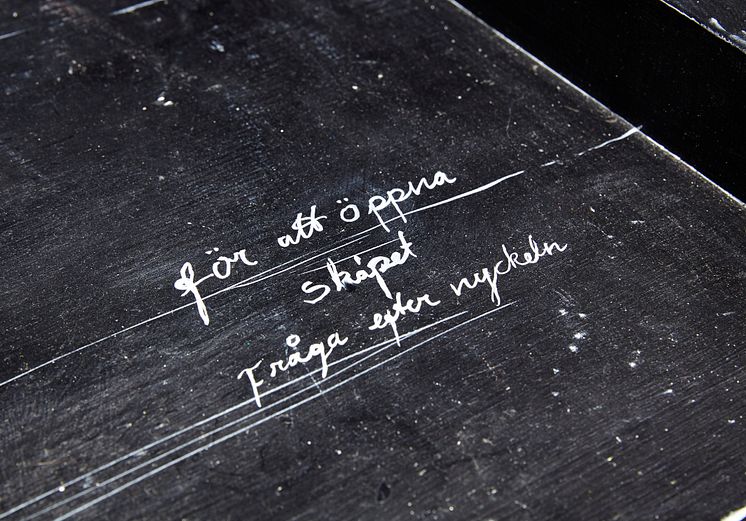 för att öppna
skåpet
Fråga efter nyckeln